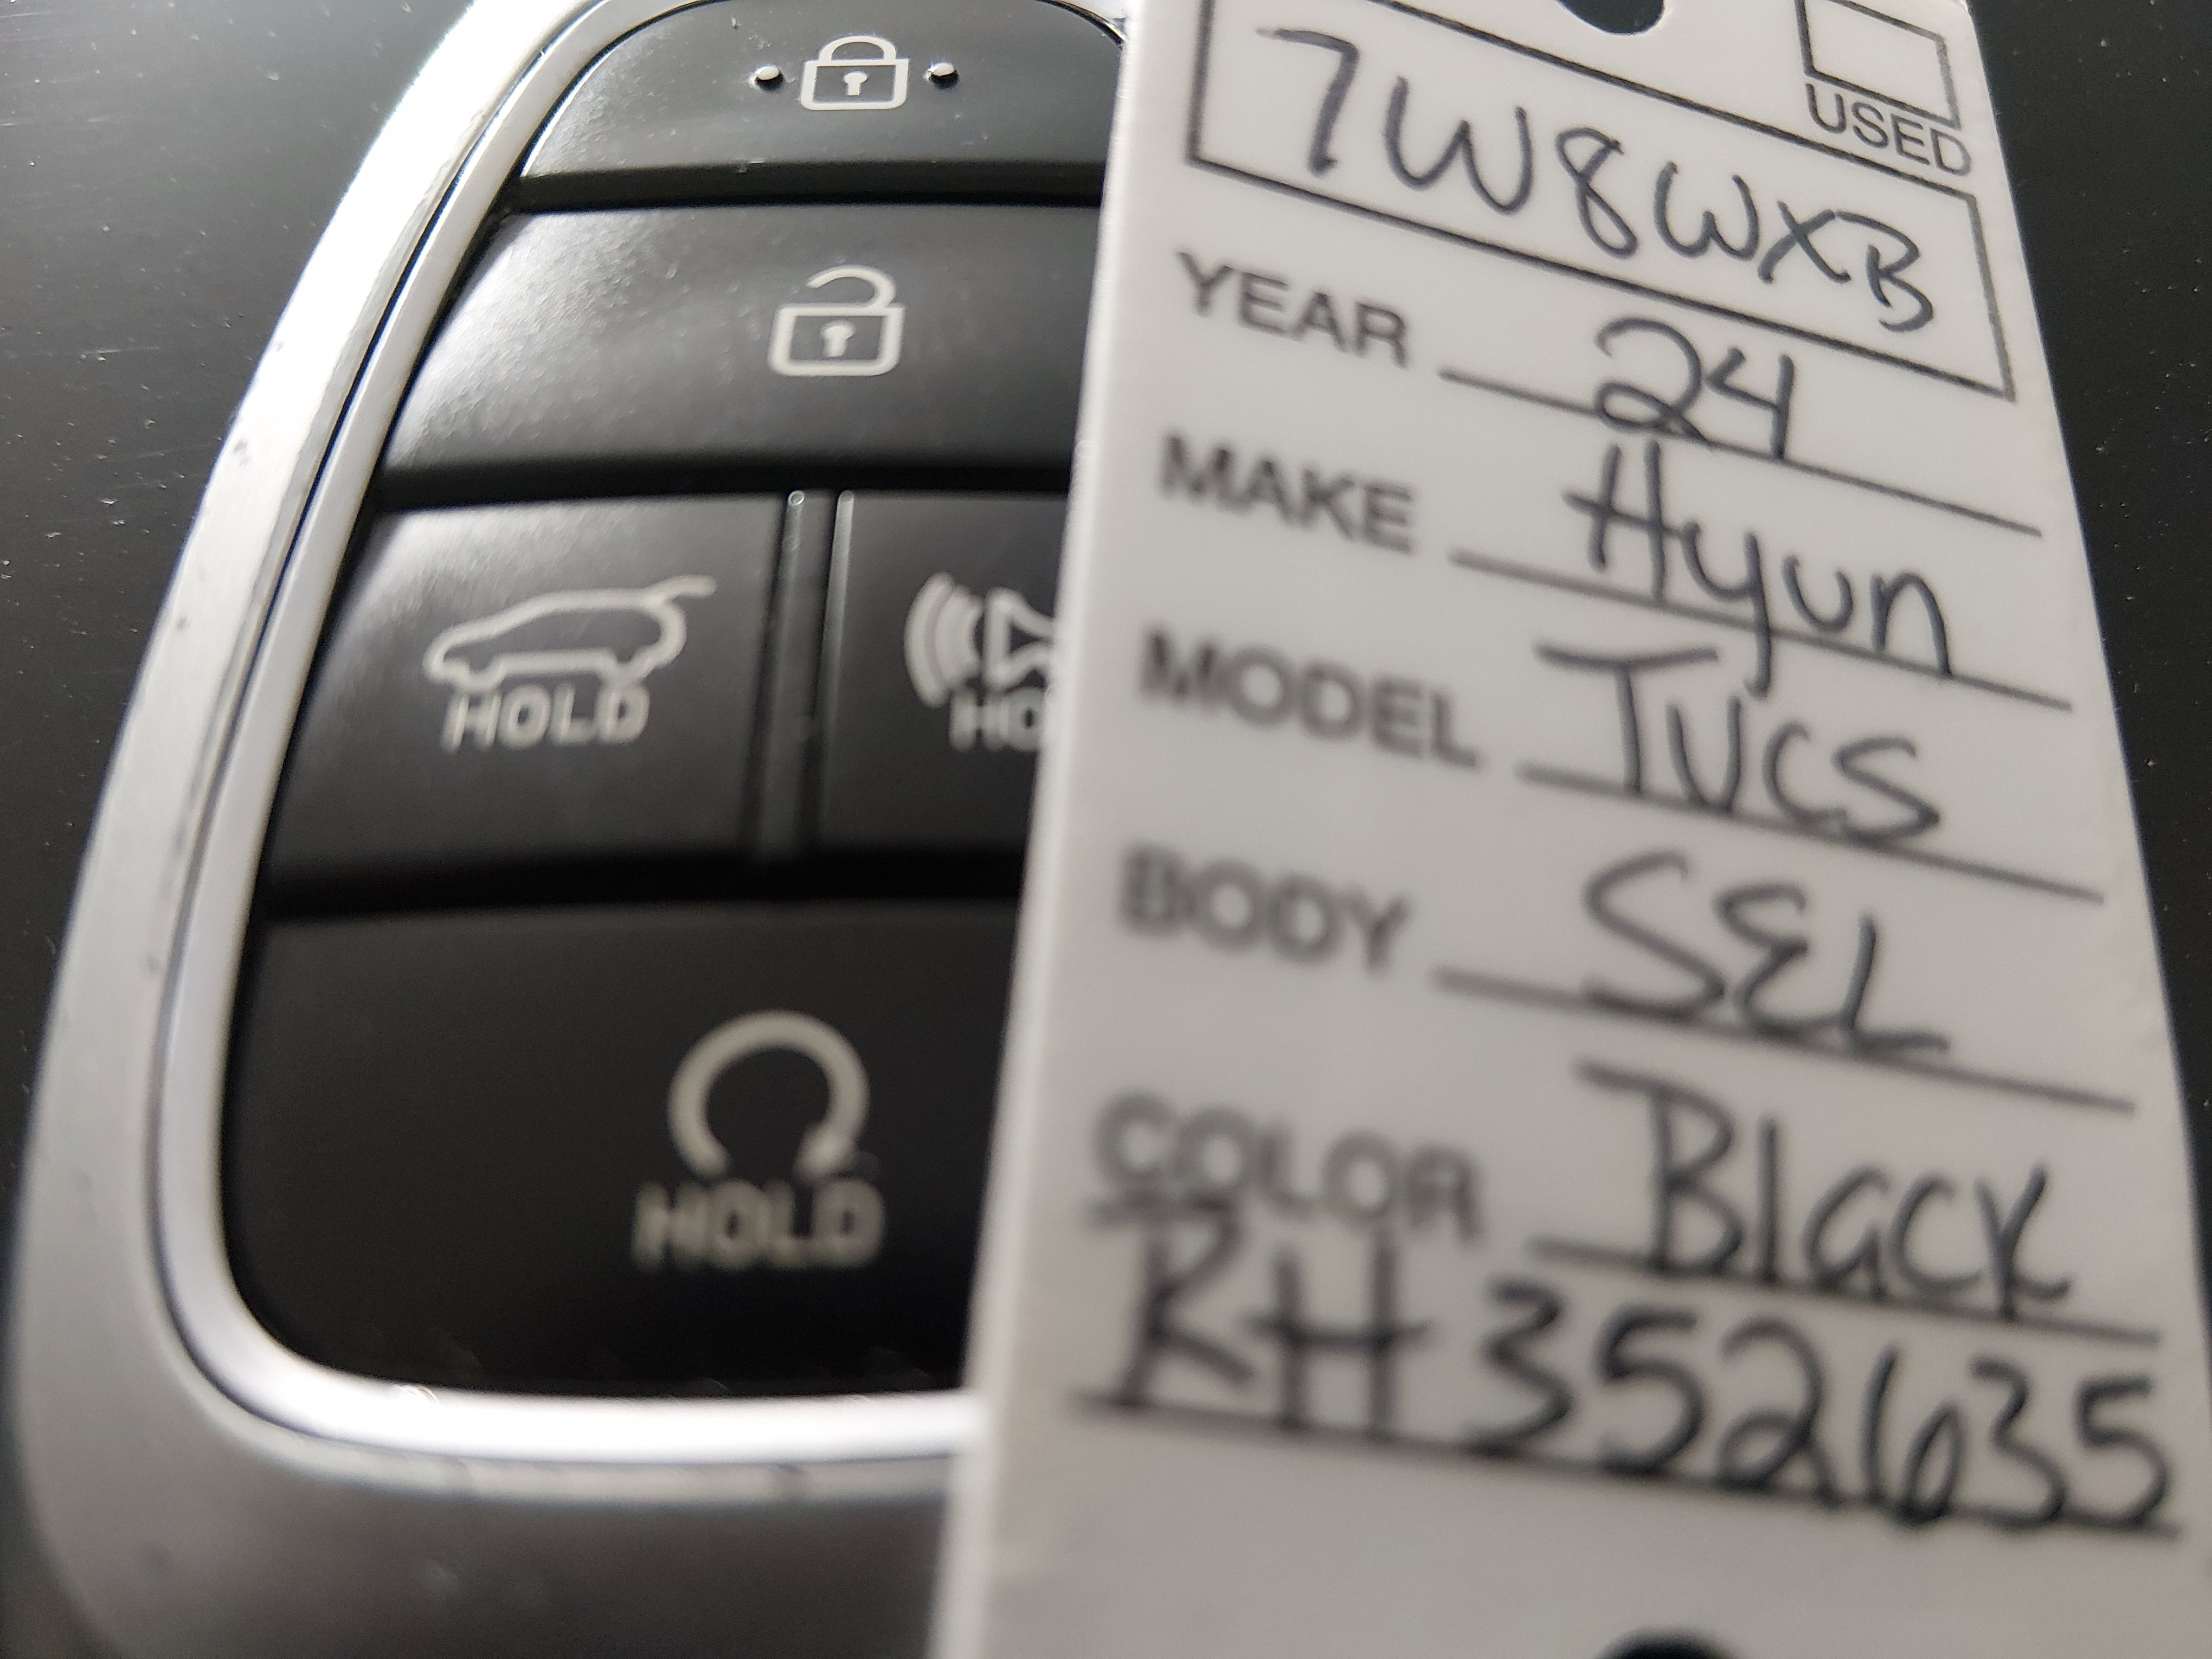 USED
7W8WXB
YEAR 24
MAKE Hyun
MODEL TUCS
BODY SEL
COLOR Black
RH352635
HOLD
HO
HOLD